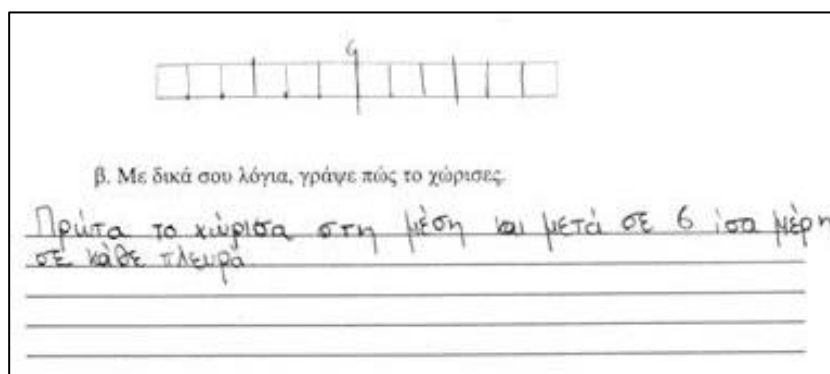 6
β. Με δικά σου λόγια, γράψε πώς το χώρισες.
Πρώτα το χώρισα στη μέση και μετά σε 6 ίσα μέρη
σε κάθε πλευρά